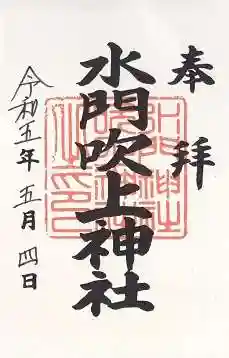 奉拝
水門吹上神社
令和五年 五月 四日